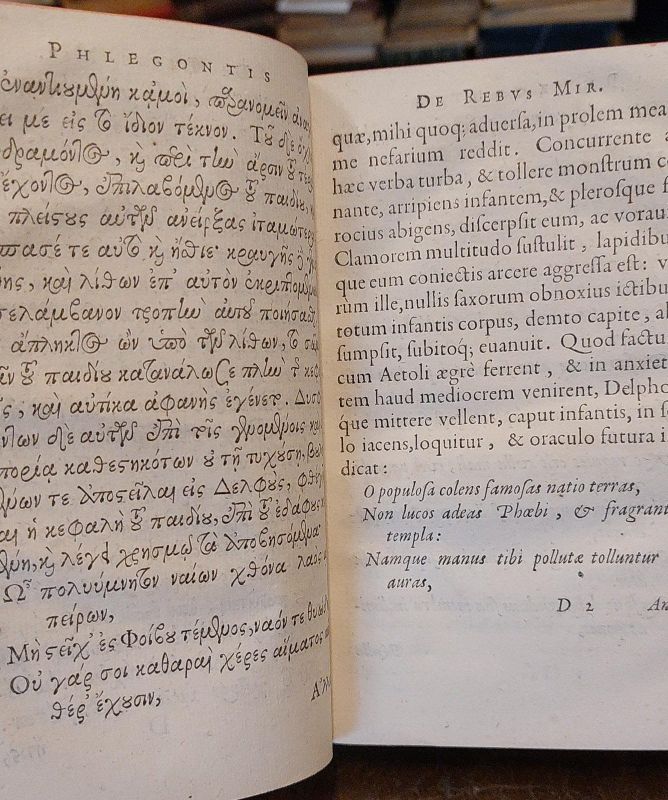 PHLEGONTIS
ἐναντιουμένη κἀμοὶ, παρανομεῖν
με εἰς τὸ ἴδιον τέκνον. Τοῦ δὲ
δραμόντος, καὶ περὶ τὴν ἄρσιν τοῦ
ἔχοντος, ἐπιλαβόμενος τοῦ παιδίου,
πλείστους αὐτῶν ἀνείρξας ἰταμώτερον
τε αὐτὸ καὶ ἤσθιε· κραυγῆς
καὶ λίθων ἐπ' αὐτὸν ἐκριπτομένων
τροπὴν αὐτοῦ ποιήσασθ
ἄπληκτος ὢν ὑπὸ τῶν λίθων, τὸ
τοῦ παιδίου κατανάλωσε πλὴν τ κεφ
καὶ αὐτίκα ἀφανὴς ἐγένετο. Δυσφ
δὲ αὐτῶν ἐπὶ τοῖς γενομένοις καὶ
πορίᾳ καθεστηκότων οὐ τῇ τυχούσῃ, βου
τε ἀποστεῖλαι εἰς Δελφοὺς,
ἡ κεφαλὴ τοῦ παιδίου, ἐπὶ τοῦ ἐδάφους
καὶ λέγει χρησμῷ τὰ ἀποβησόμενα·
Ὦ πολυύμνητον ναίων χθόνα λαὸς
πείρων,
Μὴ στεῖχ' ἐς Φοίβου τέμενος, ναόν τε θυώδη
Οὐ γάρ σοι καθαραὶ χέρες αἵματος
θέρ' ἔχουσιν,
DE REBVS MIR.
quæ, mihi quoq; aduersa, in prolem mea
me nefarium reddit. Concurrente a
hæc verba turba, & tollere monstrum c
nante, arripiens infantem, & plerosque f
rocius abigens, discerpsit eum, ac vorau
Clamorem multitudo sustulit, lapidibu
que eum coniectis arcere aggressa est: v
rum ille, nullis saxorum obnoxius ictibu
totum infantis corpus, demto capite, a
sumpsit, subitoq; euanuit. Quod factu
cum Aetoli ægrè ferrent, & in anxiet
tem haud mediocrem venirent, Delpho
que mittere vellent, caput infantis, in s
lo iacens, loquitur, & oraculo futura i
dicat:
O populosa colens famosas natio terras,
Non lucos adeas Phœbi, & fragranti
templa:
Namque manus tibi pollutæ tolluntur
auras,
D 2 An